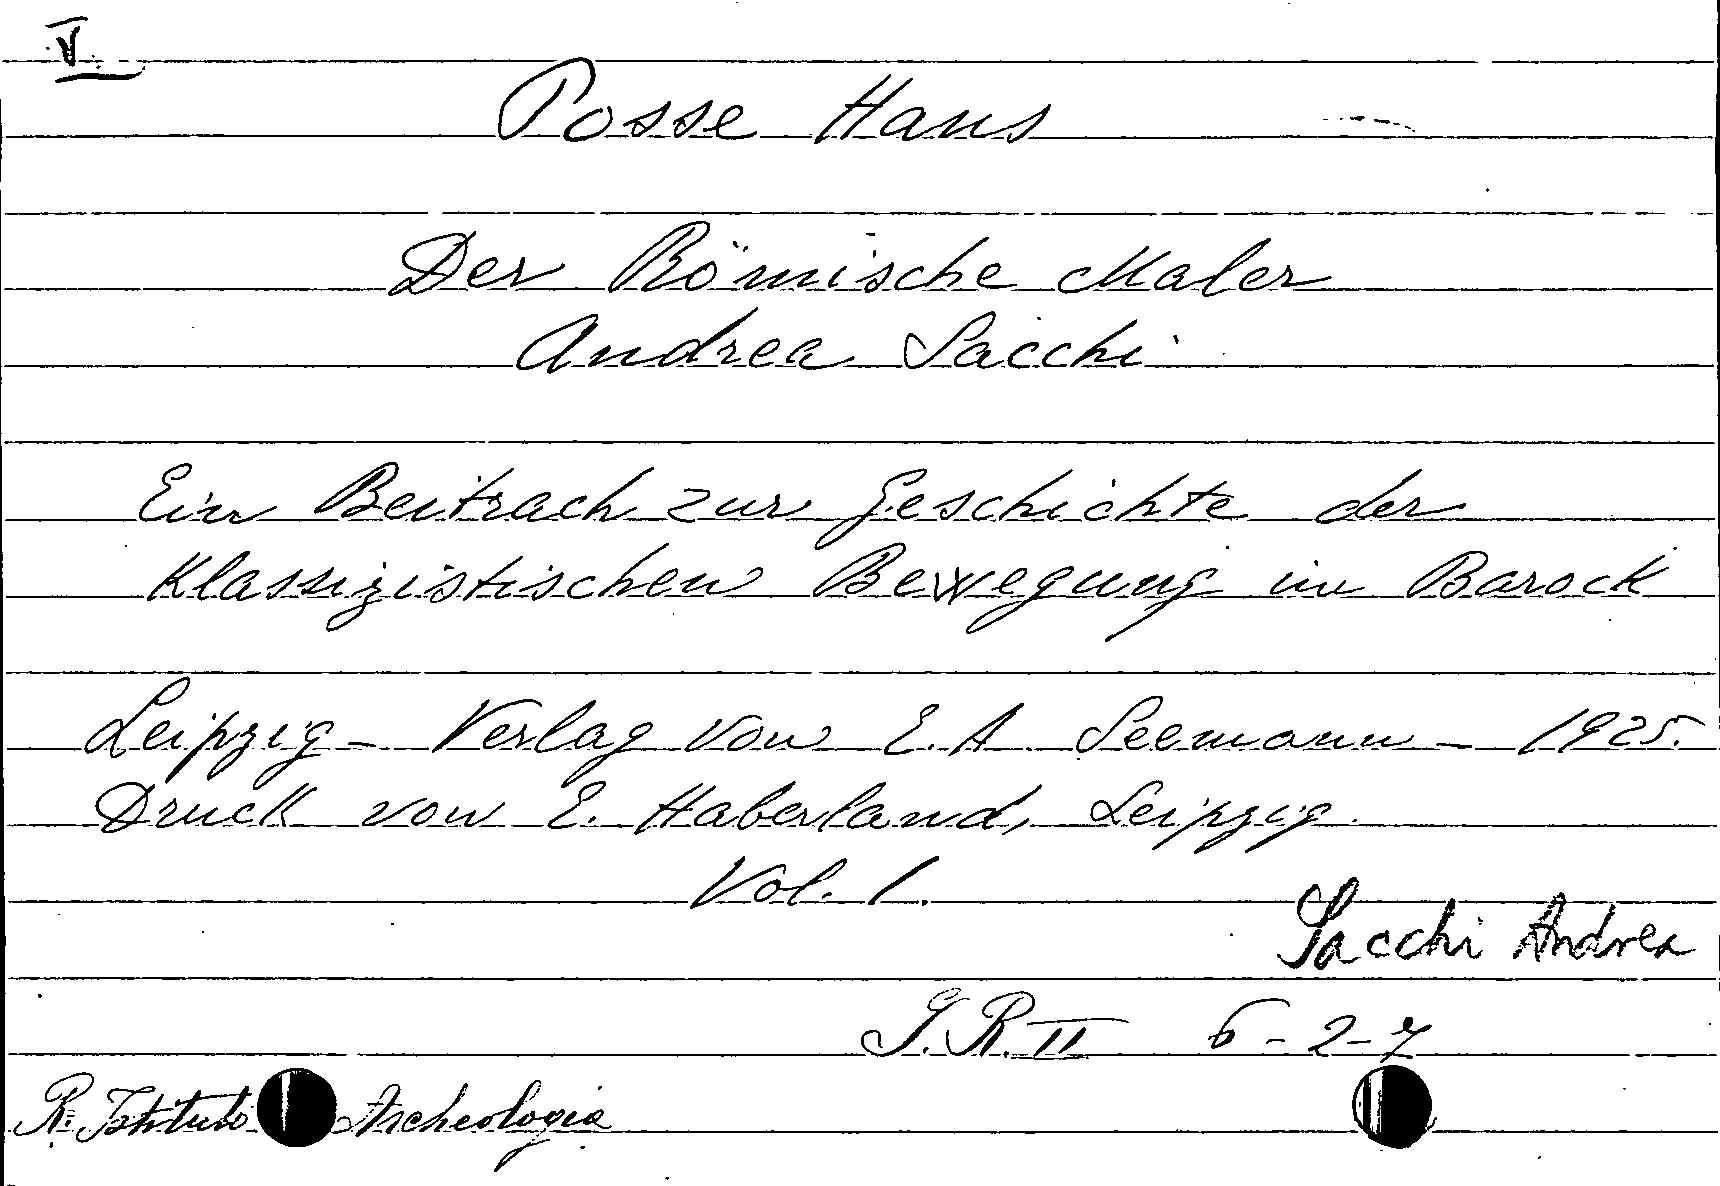 V
Posse Hans
Der Römische Maler
Andrea Sacchi
Ein Beitrach zur Geschichte der
Klassizistischen Bewegung im Barock
Leipzig - Verlag von E. A. Seemann - 1925.
Druck von E. Haberland, Leipzig.
Vol. 1.
Sacchi Andrea
S. R. II 6-2-7
R. Istituto Archeologia